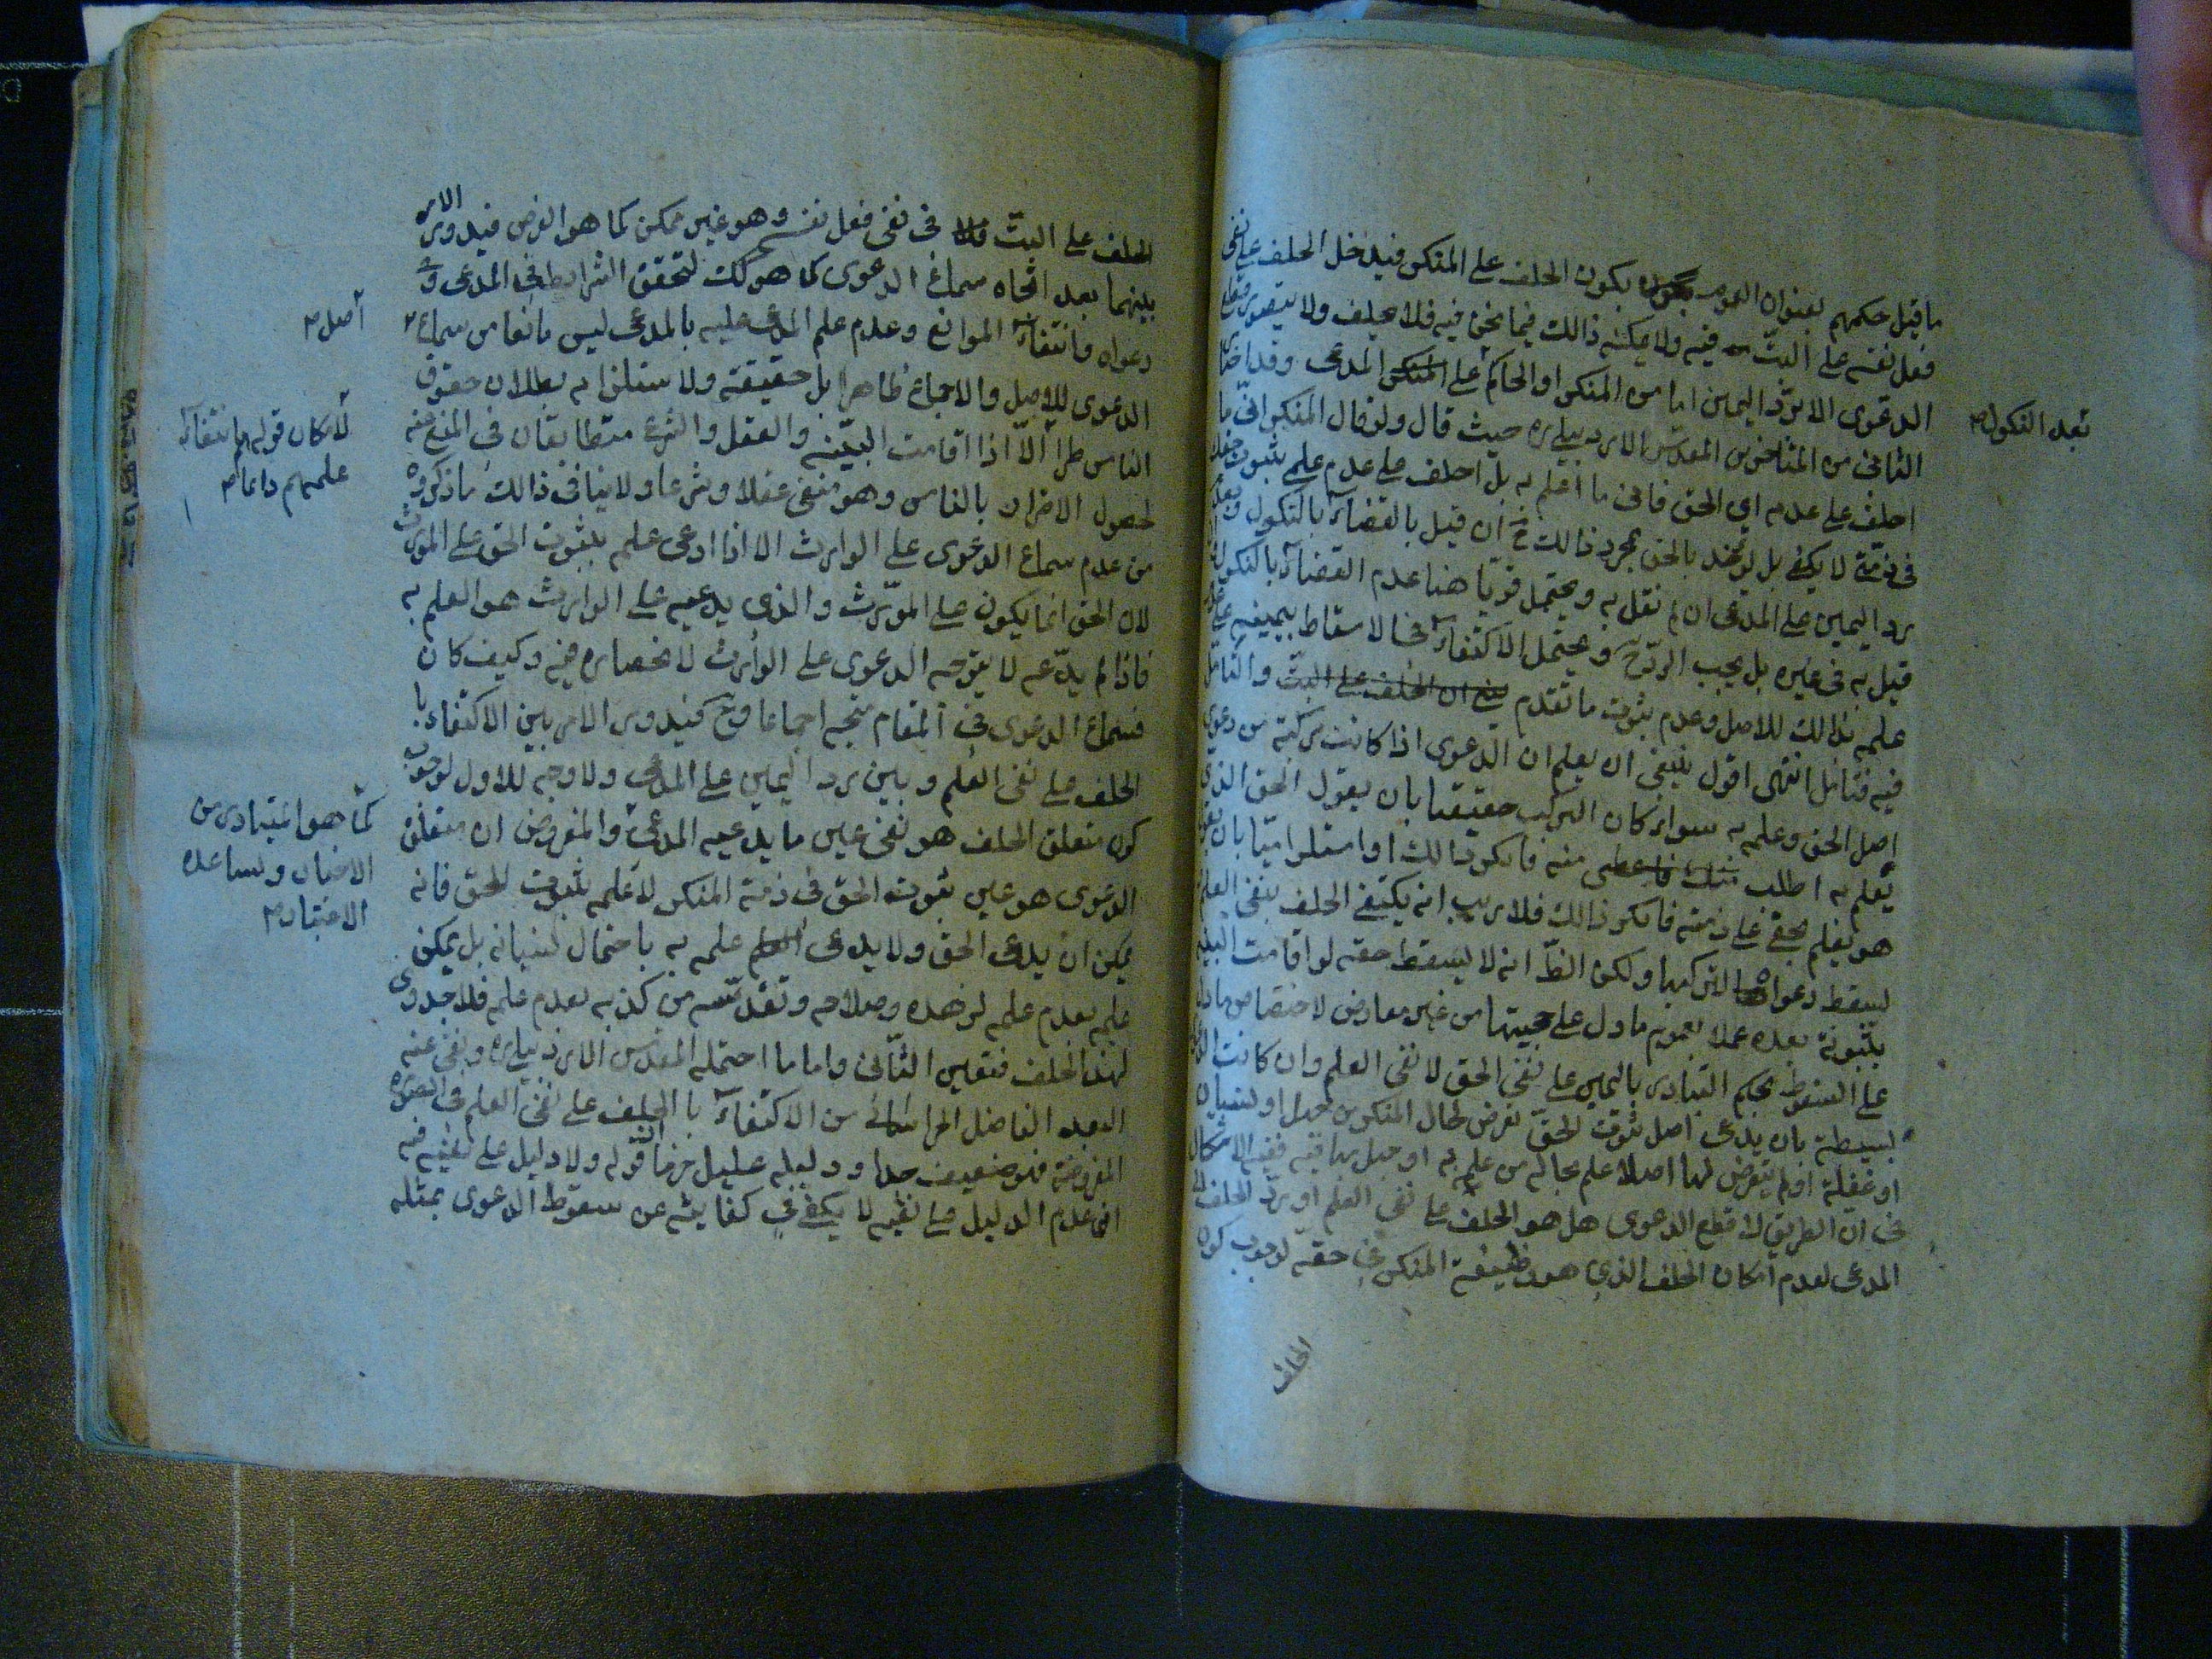 ما قيل حكمهم بعنوان العموم يكون الحلف على المنكر فيدخل الحلف على نفى
فعل نفسه على البتّ فيه ولا يمكنه ذالك فيما نحن فيه فلا يحلف ولا يتصور قطع
الدعوى الا بردّ اليمين اما من المنكر او الحاكم على المدعى وقد اختار
الثانى من المتاخرين المقدس الاردبيلى ره حيث قال ولو قال المنكر انّى ما
احلف على عدمه اى الحق فانى ما اعلم به بل احلف على عدم علمى بثبوت حقك
فى ذمتى لا يكفى بل يؤخذ بالحق بمجرد ذالك ح ان قيل بالقضاء بالنكول وبعد
رد اليمين على المدعى ان لم نقل به ويحتمل قويّا هنا عدم القضاء بالنكول وان
قيل به فى غيره بل يجب الردّ ح ويحتمل الاكتفاء فى الاسقاط بيمينه على عدم
علمه بذالك للاصل وعدم ثبوت ما تقدم من ان الحلف على البتّ والتامل
فيه فتامل انتهى اقول ينبغى ان يعلم ان الدعوى اذا كانت مركبة من دعوى
اصل الحق وعلمه به سواء كان التركيب حقيقيا بان يقول الحق الذى
يعلم به اطلب منه فانكر ذالك او استلزاميّا بان يقول
هو يعلم بحقى على ذمته فانكر ذالك فلا ريب انه يكتفى الحلف بنفى العلم
لسقط دعواه لتركبها ولكن الظّ انه لا يسقط حقه لو اقامت البينة
بثبوته بعده عملا بعموم ما دل على حجيتها من غير معارض لاختصاص ما دل
على السقوط بحكم التبادر باليمين على نفى الحق لا نفى العلم وان كانت الدعوى
بسيطة بان يدعى اصل ثبوت الحق تعرض لحال المنكر من جهل او نسيان
او غفلة او لم يتعرض لها اصلا علم بحاله من علمه به او جهل بها فيه ففيه الاشكال
فى انّ الطريق لقطع الدعوى هل هو الحلف على نفى العلم او ردّ الحلف الى
المدعى لعدم امكان الحلف الذى هو وظيفة المنكر فى حقه لوجوب كونه
الحلف
بعد النكول
الحلف على البتّ فى نفى فعل نفسه وهو غير ممكن كما هو الفرض فيدور الامر
بينهما بعد اتجاه سماع الدعوى كما هو كك لتحقق الشرايط فى المدعى و
دعواه وانتفاء الموانع وعدم علم المدعى عليه بالمدعى ليس مانعا من سماع
الدعوى للاصل والاجماع ظاهرا بل حقيقة ولاستلزامه بطلان حقوق
الناس طرا الّا اذا اقامت البيّنه والعقل والشرع متطابقان فى المنع عنه
لحصول الاضرار بالناس وهو منفى عقلا وشرعا ولا ينافى ذالك ما ذكروه
من عدم سماع الدعوى على الوارث الا اذا ادعى علمه بثبوت الحق على المورّث
لان الحق انما يكون على المورّث والذى يدعيه على الوارث هو العلم به
فاذا لم يدّعه لا يتوجه الدعوى على الوارث لانحصاره فيه وكيف كان
فسماع الدعوى فى المقام متجه اجماعا وح فيدور الامر بين الاكتفاء با
الحلف على نفى العلم وبين رد اليمين على المدعى ولا وجه للاول لوجوب
كون متعلق الحلف هو نفى عين ما يدعيه المدعى والمفروض ان متعلق
الدعوى هو عين ثبوت الحق فى ذمة المنكر لا علمه بثبوت الحق فانه
يمكن ان يدعى الحق ولا يدعى علمه به باحتمال نسيانه بل يمكن
علمه بعدم علمه لزهده وصلاحه وتقدسه من كذبه بعدم علمه فلا جدوى
لهذا الحلف فتعين الثانى واما ما احتمله المقدس الاردبيلى ره ونفى عنه
البعد الفاضل الخراسانى من الاكتفاء با الحلف على نفى العلم فى الصورة
المفروضة فهو ضعيف جدا ودليله عليل جزما قوله ولا دليل على نفيه فيه
ان عدم الدليل على نفيه لا يكفى فى كفايته عن سقوط الدعوى بمثله
اصل
لامكان قوله بانتفاء
علمهم دائما
كما هو المتبادر من
الاخبار ويساعده
الاعتبار